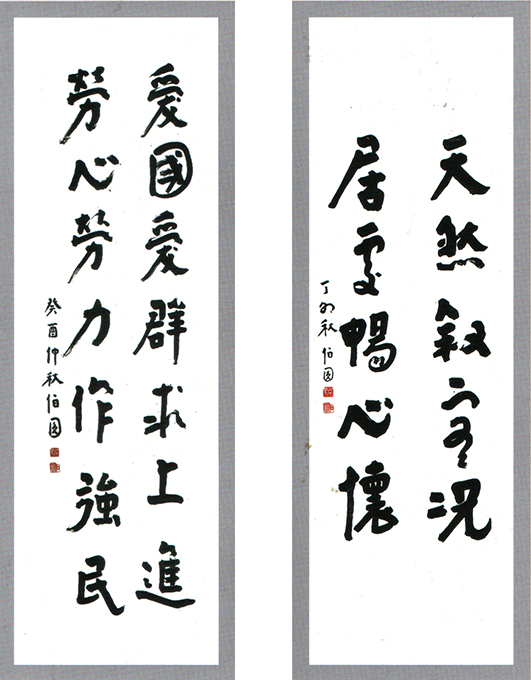 天然叙况
居處暢心懷
丁卯秋 伯圓
愛國愛群求上進
勞心勞力作強民
癸酉仲秋伯圓